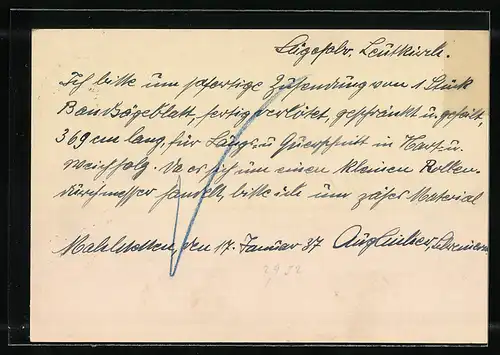 Sägefabr. Leutkirch.
Ich bitte um sofortige Zusendung von 1 Stück
Bandsägeblatt, fertig verlötet, geschränkt u. gefeilt,
369 cm lang, für Längs- u. Querschnitt in Hart- u.
Weichholz. Da es sich um einen kleinen Rollen-
durchmesser handelt, bitte ich um zähes Material
Mahlstetten, den 17. Januar 37 Aug.